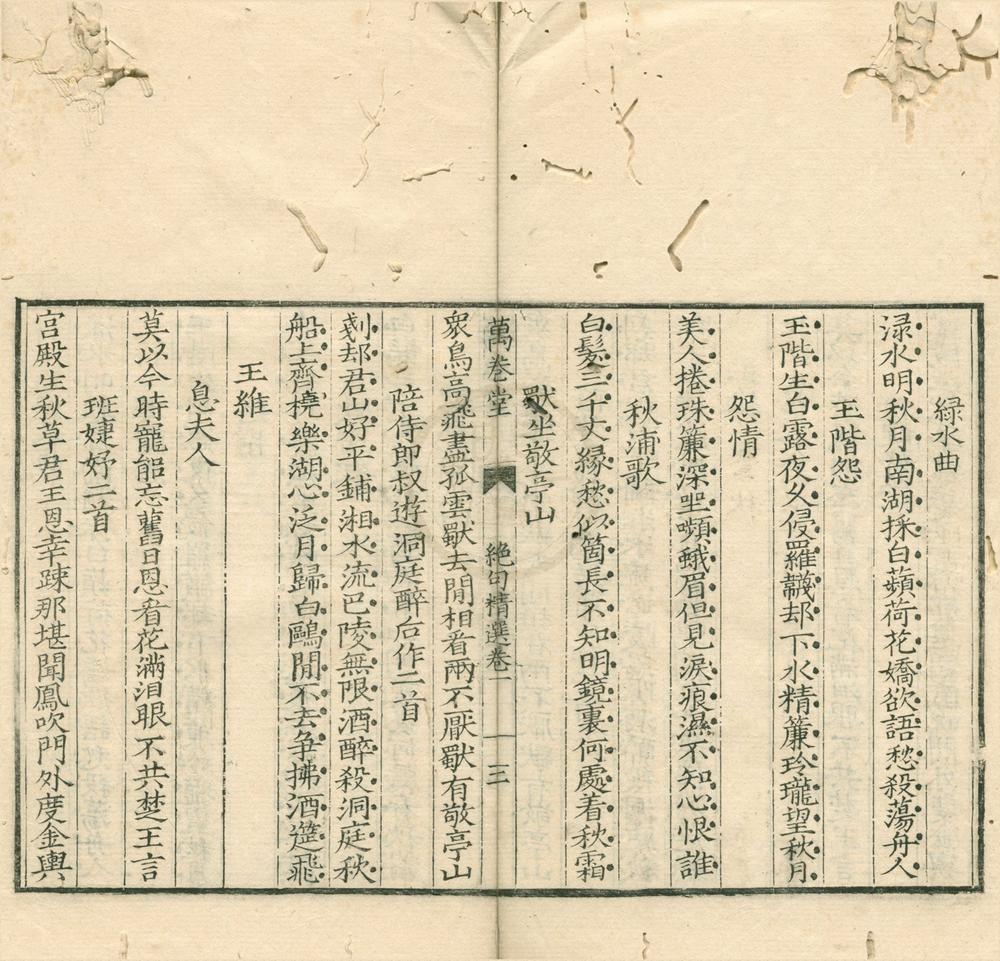 緑水曲
渌水明秋月南湖採白蘋荷花嬌欲語愁殺蕩舟人
玉階怨
玉階生白露夜久侵羅韈却下水精簾玲瓏望秋月
怨情
美人捲珠簾深坐嚬蛾眉但見淚痕濕不知心恨誰
秋浦歌
白髮三千丈緣愁似箇長不知明鏡裏何處着秋霜
獨坐敬亭山
萬卷堂
絶句精選卷一
三
衆鳥高飛盡孤雲獨去閒相看兩不厭獨有敬亭山
陪侍郎叔遊洞庭醉后作二首
剗却君山好平鋪湘水流巴陵無限酒醉殺洞庭秋
船上齊橈樂湖心泛月歸白鷗閒不去争拂酒筵飛
王維
息夫人
莫以今時寵能忘舊日恩看花滿泪眼不共楚王言
班婕妤二首
宮殿生秋草君王恩幸踈那堪聞鳳吹門外度金輿